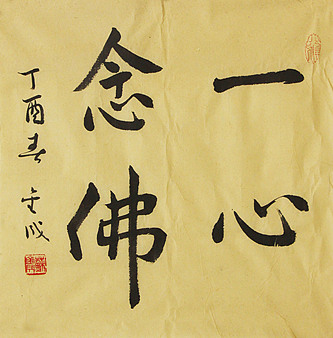 一心
念佛
丁酉春